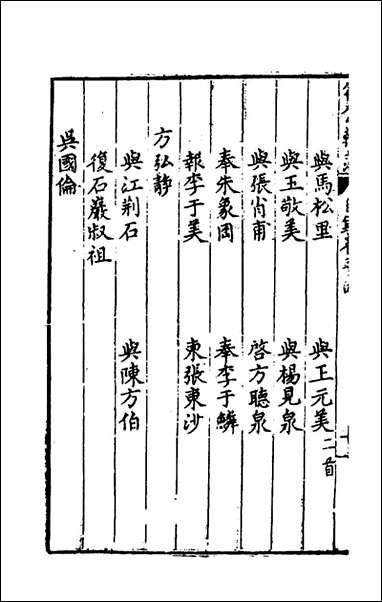 與馬松里　與王元美二首
與王敬美　與楊見泉
與張肖甫　啓方聽泉
奉朱象岡　奉李于鱗
報李于美　柬張東沙
方弘静
與江荆石　與陳方伯
復石巖叔祖
吳國倫